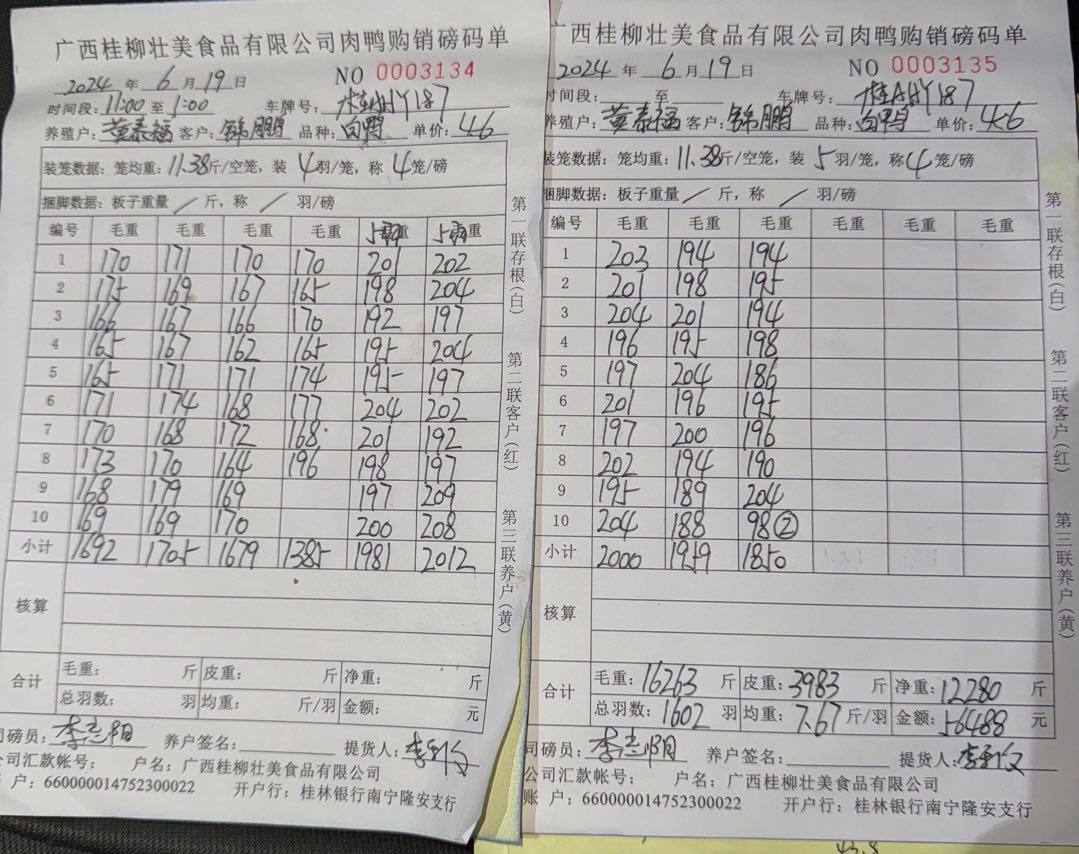 广西桂柳壮美食品有限公司肉鸭购销磅码单
2024 年 6 月 19 日 NO 0003134
时间段:11:00 至 1:00 车牌号: 桂AHY187
养殖户:黄泰福 客户:锦鹏 品种:白鸭 单价:4.6
装笼数据:笼均重:11.38斤/空笼,装 4 羽/笼,称 4 笼/磅
捆脚数据:板子重量 / 斤,称 / 羽/磅
编号 毛重 毛重 毛重 毛重 5羽重 5羽重
1 170 171 170 170 201 202
2 175 169 167 165 198 204
3 166 167 166 170 192 197
4 165 167 162 165 195 204
5 165 171 171 174 195 197
6 171 174 168 177 204 202
7 170 168 172 168 201 192
8 173 170 164 196 198 197
9 168 179 169 197 209
10 169 169 170 200 208
小计 1692 1705 1679 1385 1981 2012
核算
合计 毛重: 斤 皮重: 斤 净重: 斤
总羽数: 羽 均重: 斤/羽 金额: 元
司磅员: 养户签名: 提货人:
公司汇款帐号: 户名:广西桂柳壮美食品有限公司
户:660000014752300022 开户行:桂林银行南宁隆安支行
第一联存根(白)
第二联客户(红)
第三联养户(黄)
广西桂柳壮美食品有限公司肉鸭购销磅码单
2024 年 6 月 19 日 NO 0003135
时间段: 至 车牌号: 桂AHY187
养殖户:黄泰福 客户:锦鹏 品种:白鸭 单价:4.6
装笼数据:笼均重:11.38斤/空笼,装 5 羽/笼,称 4 笼/磅
捆脚数据:板子重量 / 斤,称 / 羽/磅
编号 毛重 毛重 毛重 毛重 毛重 毛重
1 203 194 194
2 201 198 195
3 204 201 194
4 196 195 198
5 197 204 186
6 201 196 195
7 197 200 196
8 202 194 190
9 195 189 204
10 204 188 98②
小计 2000 1959 1850
核算
合计 毛重:16263 斤 皮重:3983 斤 净重:12280 斤
总羽数:1602 羽 均重:7.67 斤/羽 金额:56488 元
司磅员: 养户签名: 提货人:
公司汇款帐号: 户名:广西桂柳壮美食品有限公司
账 户:660000014752300022 开户行:桂林银行南宁隆安支行
第一联存根(白)
第二联客户(红)
第三联养户(黄)